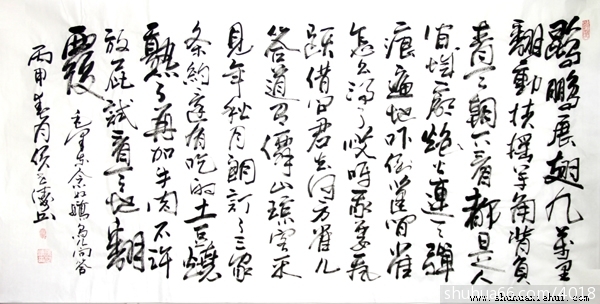 鲲鹏展翅九万里
翻動扶摇羊角背负
青天朝下看都是人
间城郭炮火連天彈
痕遍地吓倒蓬间雀
怎么得了哎呀我要飛
躍借问君去何方雀儿
答道有僊山琼阁不
見年秋月朗訂了三家
条约還有吃的土豆燒
熟了再加牛肉不许
放屁試看天地翻
覆 毛澤东念奴嬌鸟儿问答
丙申春月侯
shuhua66.com/4018
www.shuhuaxinshui.com